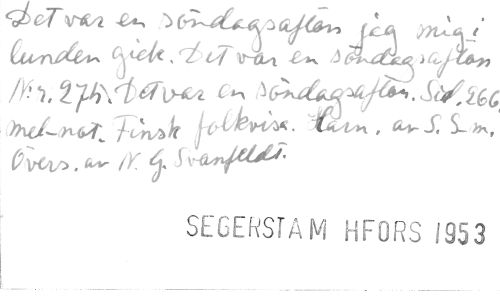 Det var en söndagsafton jag mig i
lunden gick. Det var en söndagsafton
N:r. 274. Det var en söndagsafton. Sid. 266,
mel-not. Finsk folkvisa. Harm. av S. S-m.
Övers. av N. G. Svanfeldt.
SEGERSTAM HFORS 1953